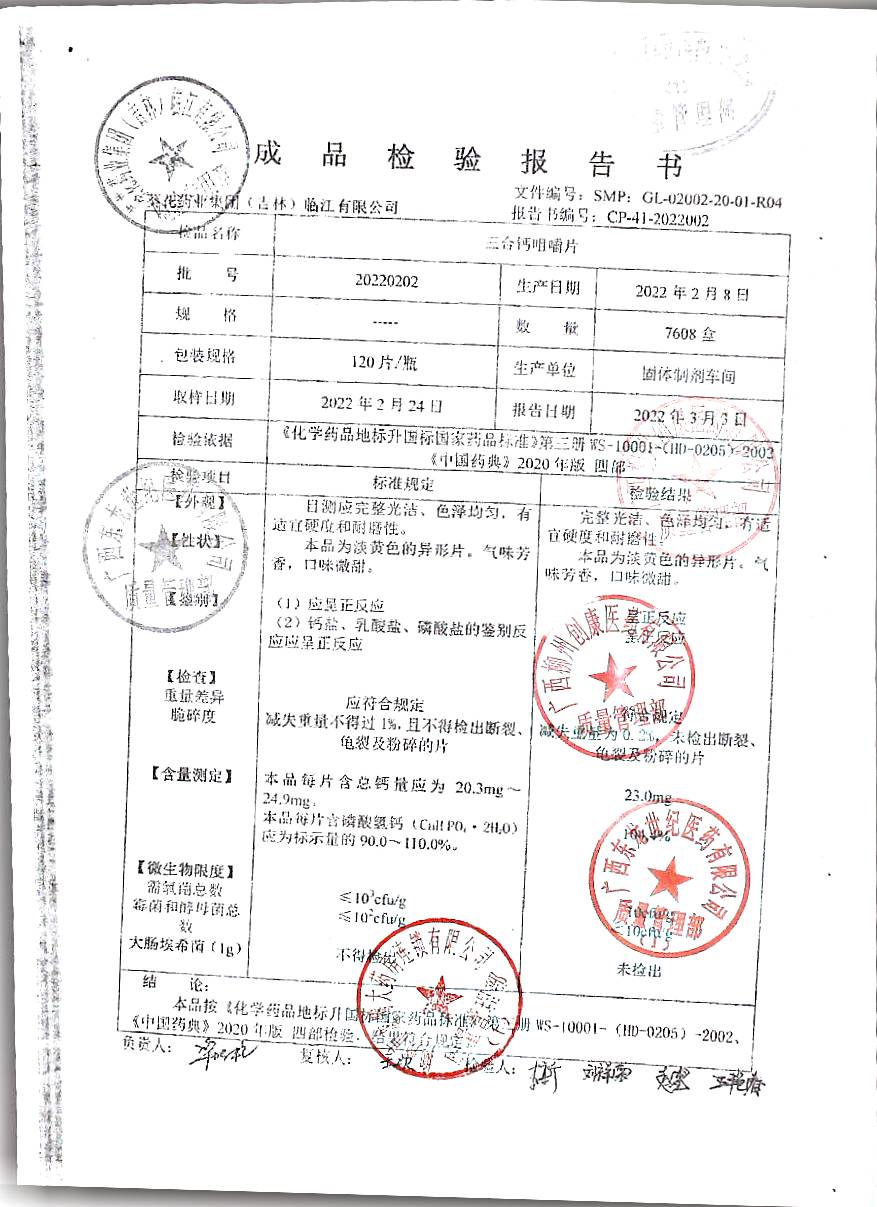 成品检验报告书
文件编号：SMP：GL-02002-20-01-R04
葵花药业集团（吉林）临江有限公司
报告书编号：CP-41-2022002
检品名称 三合钙咀嚼片
批 号 20220202 生产日期 2022年2月8日
规 格 ----- 数 量 7608盒
包装规格 120片/瓶 生产单位 固体制剂车间
取样日期 2022年2月24日 报告日期 2022年3月3日
检验依据 《化学药品地标升国标国家药品标准》第三册 WS-10001-(HD-0205)-2002
《中国药典》2020年版 四部
检验项目 标准规定 检验结果
【外观】 目测应完整光洁、色泽均匀，有 完整光洁、色泽均匀，有适
适宜硬度和耐磨性。 宜硬度和耐磨性。
【性状】 本品为淡黄色的异形片。气味芳 本品为淡黄色的异形片。气
香，口味微甜。 味芳香，口味微甜。
【鉴别】 （1）应呈正反应 呈正反应
（2）钙盐、乳酸盐、磷酸盐的鉴别反 呈正反应
应应呈正反应
【检查】
重量差异 应符合规定 符合规定
脆碎度 减失重量不得过1%，且不得检出断裂、 减失重量为0.2%，未检出断裂、
龟裂及粉碎的片 龟裂及粉碎的片
【含量测定】 本品每片含总钙量应为 20.3mg～ 23.0mg
24.9mg。
本品每片含磷酸氢钙（CaHPO₄·2H₂O）
应为标示量的90.0～110.0%。
【微生物限度】
需氧菌总数 ≤10³cfu/g
霉菌和酵母菌总 ≤10²cfu/g <10cfu/g
数
大肠埃希菌（1g） 不得检出 未检出
结 论：
本品按《化学药品地标升国标国家药品标准》第三册 WS-10001-（HD-0205）-2002、
《中国药典》2020年版 四部检验，结果符合规定。
负责人： 复核人： 检验人：
广西东龙世纪医药有限公司
质量管理部
广西柳州创康医药有限公司
质量管理部
广西东龙世纪医药有限公司
质量管理部
(1)